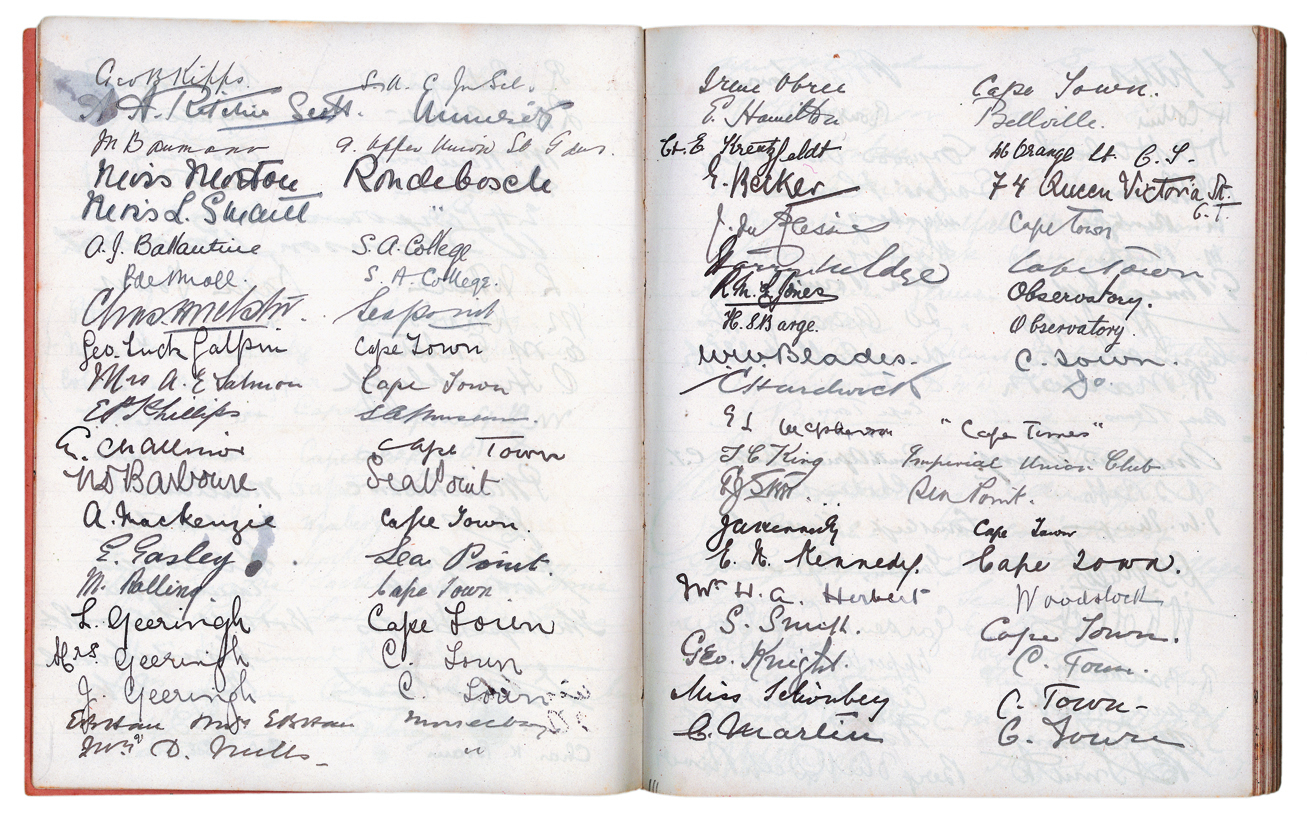 Geo B Kipps. S.A. C Jr Scl.
A. Ritchie Scott. University
M Baumann 9. Upper Union St Gdns.
Nevis Morton Rondebosch
Nevis L. Smartt "
A. J. Ballantine S. A. College
S. A. College.
Chas. Seapoint
Geo. Luck Galpin Cape Town
Mrs A. E Salmon Cape Town
E P Phillips S A Museum.
E. Challinor Cape Town
Barbour Sea Point
A. Mackenzie Cape Town.
E. Easley. Sea Point.
M. Rolling Cape Town
L. Geeringh Cape Town
Mrs Geeringh C. Town
J. Geeringh C. Town
Mrs
D. Mills "
Irene Obree Cape Town.
E. Hamilton Bellville.
Ct. E Kreutzfeldt 46 Orange St. C. T.
E. Becker 74 Queen Victoria St. C. T.
J. du Cape Town
Cape Town
R. M. L Jones Observatory.
H. S Barge. Observatory.
W. W. Blades. C. Town.
C Hardwick Do
"Cape Times"
T C King Imperial Union Club
Sea Point.
Kennedy Cape Town
E. N. Kennedy. Cape Town.
Mr H. A. Herbert Woodstock
S. Smith. Cape Town.
Geo. Knight. C. Town.
Miss Schönbey C. Town-
C. Martin C. Town